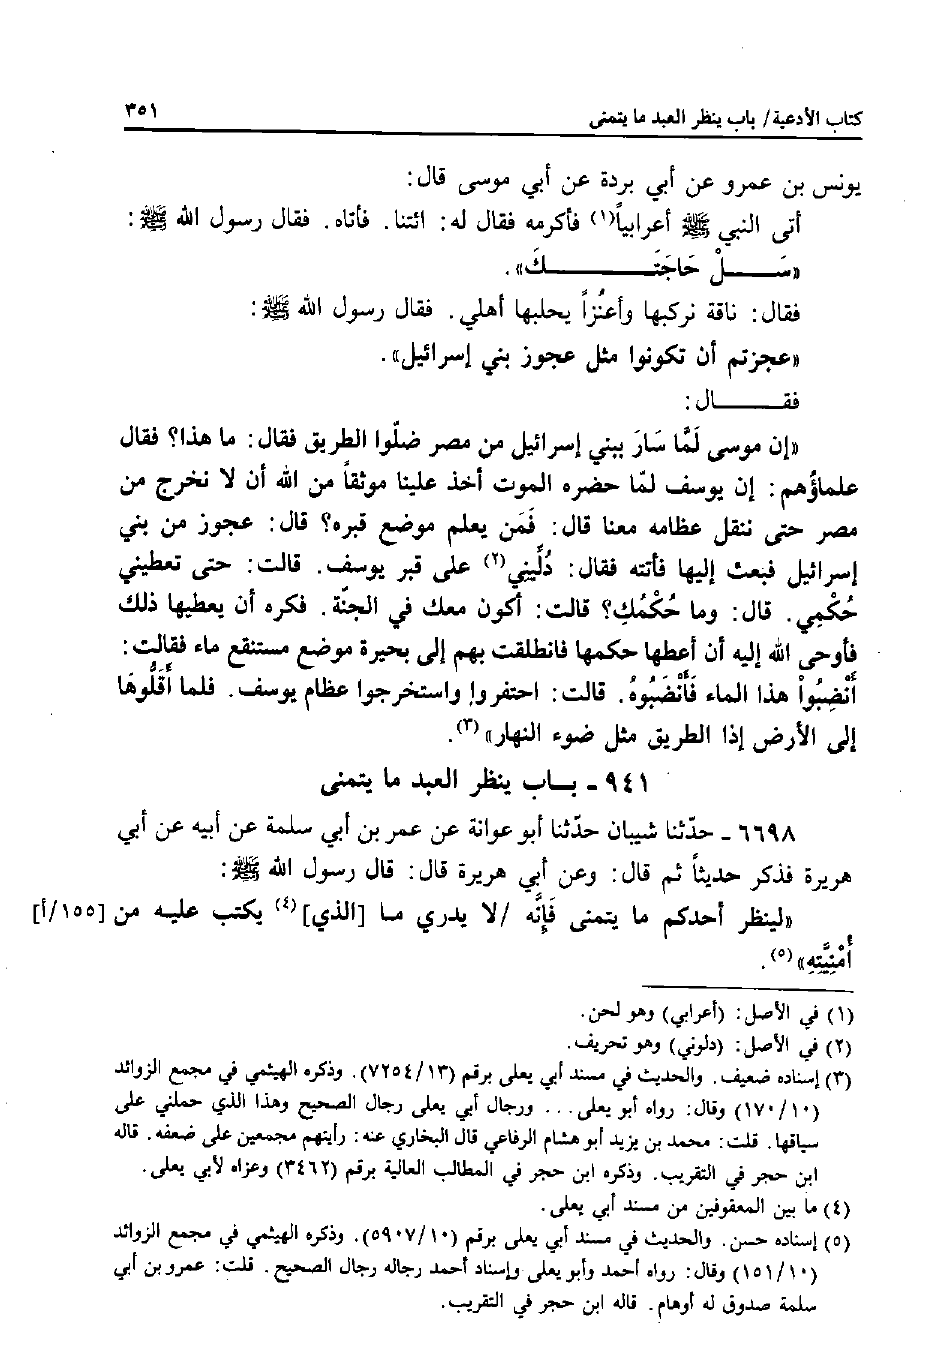 كتاب الأدعية/ باب ينظر العبد ما يتمنى ٣٥١
يونس بن عمرو عن أبي بردة عن أبي موسى قال:
أتى النبي ﷺ أعرابياً(١) فأكرمه فقال له: ائتنا. فأتاه. فقال رسول الله ﷺ:
«سَـلْ حَاجَتَـكَ».
فقال: ناقة نركبها وأعنُزاً يحلبها أهلي. فقال رسول الله ﷺ:
«عجزتم أن تكونوا مثل عجوز بني إسرائيل».
فقـال:
«إن موسى لَمَّا سَارَ ببني إسرائيل من مصر ضلّوا الطريق فقال: ما هذا؟ فقال
علماؤُهم: إن يوسف لمّا حضره الموت أخذ علينا موثقاً من الله أن لا نخرج من
مصر حتى ننقل عظامه معنا قال: فَمَن يعلم موضع قبره؟ قال: عجوز من بني
إسرائيل فبعث إليها فأتته فقال: دُلِّيني(٢) على قبر يوسف. قالت: حتى تعطيني
حُكْمِي. قال: وما حُكْمُكِ؟ قالت: أكون معك في الجنّة. فكره أن يعطيها ذلك
فأوحى الله إليه أن أعطها حكمها فانطلقت بهم إلى بحيرة موضع مستنقع ماء فقالت:
أَنْضِبُواْ هذا الماء فَأَنْضَبُوهُ. قالت: احتفروا واستخرجوا عظام يوسف. فلما أَقَلُّوهَا
إلى الأرض إذا الطريق مثل ضوء النهار»(٣).
٩٤١ ـ بـاب ينظر العبد ما يتمنى
٦٦٩٨ ـ حدّثنا شيبان حدّثنا أبو عوانة عن عمر بن أبي سلمة عن أبيه عن أبي
هريرة فذكر حديثاً ثم قال: وعن أبي هريرة قال: قال رسول الله ﷺ:
«لينظر أحدكم ما يتمنى فَإِنَّه /لا يدري مـا [الذي](٤) يكتب عليـه من [١٥٥/أ]
أُمْنِيَّتِهِ»(٥).
(١) في الأصل: (أعرابي) وهو لحن.
(٢) في الأصل: (دلوني) وهو تحريف.
(٣) إسناده ضعيف. والحديث في مسند أبي يعلى برقم (٧٢٥٤/١٣). وذكره الهيثمي في مجمع الزوائد
(١٧٠/١٠) وقال: رواه أبو يعلى... ورجال أبي يعلى رجال الصحيح وهذا الذي حملني على
سياقها. قلت: محمد بن يزيد أبو هشام الرفاعي قال البخاري عنه: رأيتهم مجمعين على ضعفه. قاله
ابن حجر في التقريب. وذكره ابن حجر في المطالب العالية برقم (٣٤٦٢) وعزاه لأبي يعلى.
(٤) ما بين المعقوفين من مسند أبي يعلى.
(٥) إسناده حسن. والحديث في مسند أبي يعلى برقم (٥٩٠٧/١٠). وذكره الهيثمي في مجمع الزوائد
(١٥١/١٠) وقال: رواه أحمد وأبو يعلى وإسناد أحمد رجاله رجال الصحيح. قلت: عمرو بن أبي
سلمة صدوق له أوهام. قاله ابن حجر في التقريب.